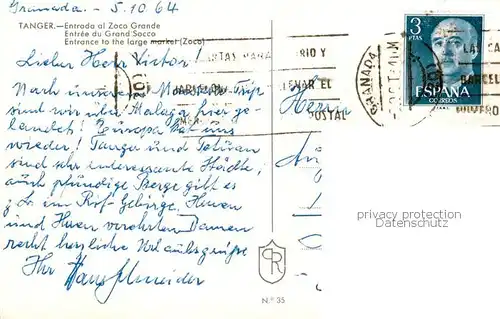 Granada - 5.10.64
TANGER.—Entrada al Zoco Grande
Entrée du Grand Socco
Entrance to the large market (Zoco)
Lieber Herr Victor!
Nach unserem Marokko-Trip
sind wir über Malaga hier ge-
landet! Europa hat uns
wieder! Tanger und Tetuan
sind sehr interessante Städte,
auch pfundige Berge gibt es
z. B. im Rif-Gebirge. Ihnen
und Ihren verehrten Damen
recht herzliche Urlaubsgrüße
Ihr Hans Schneider
Herrn
3
PTAS
ESPAÑA
CORREOS
GRANADA
CARTAS PARA
BARCELONA
RIO Y
LLEVAR EL
POSTAL
BARCEL
NUMERO
privacy protection
CR
N.º 35